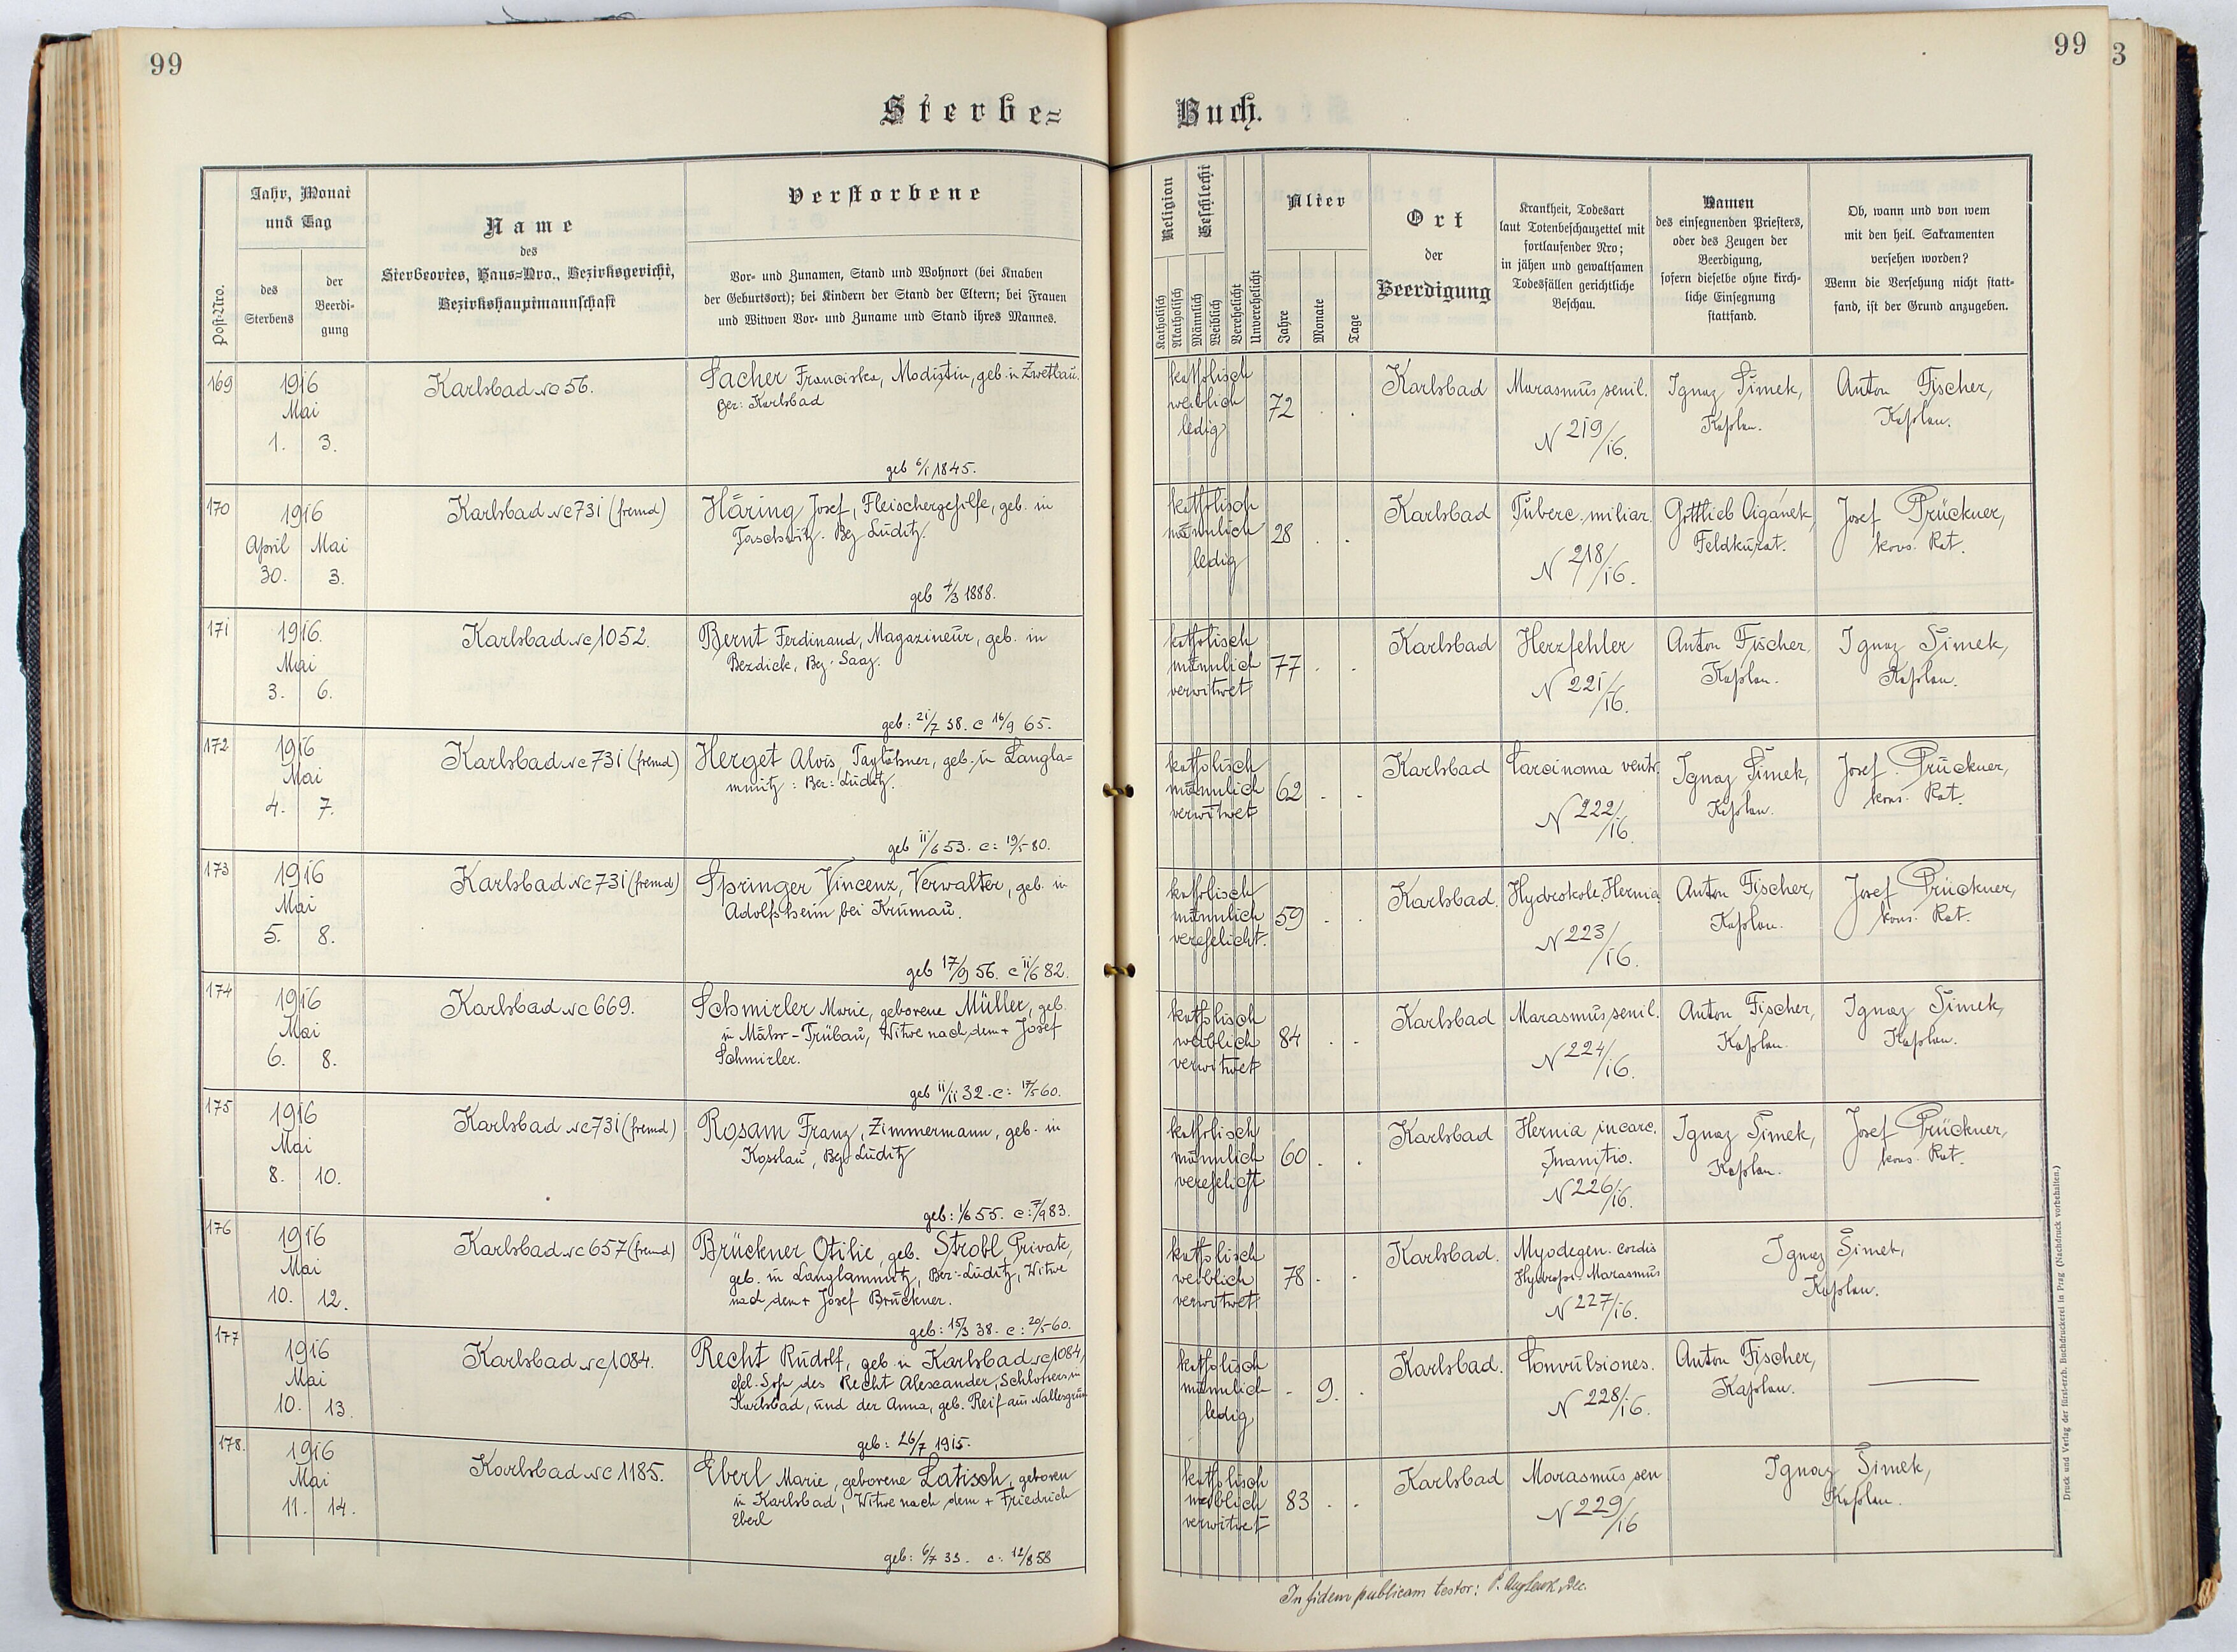 99
99
3
Sterbe=
Buch.
Post-Nro.
Jahr, Monat
und Tag
des
Sterbens
der
Beerdi-
gung
Name
des
Sterbeortes, Haus=Nro., Bezirksgericht,
Bezirkshauptmannschaft
Verstorbene
Vor- und Zunamen, Stand und Wohnort (bei Knaben
der Geburtsort); bei Kindern der Stand der Eltern; bei Frauen
und Witwen Vor- und Zuname und Stand ihres Mannes.
Religion
Katholisch
Akatholisch
Geschlecht
Männlich
Weiblich
Verehelicht
Unverehelicht
Alter
Jahre
Monate
Tage
Ort
der
Beerdigung
Krankheit, Todesart
laut Totenbeschauzettel mit
fortlaufender Nro;
in jähen und gewaltsamen
Todesfällen gerichtliche
Beschau.
Namen
des einsegnenden Priesters,
oder des Zeugen der
Beerdigung,
sofern dieselbe ohne kirch-
liche Einsegnung
stattfand.
Ob, wann und von wem
mit den heil. Sakramenten
versehen worden?
Wenn die Versehung nicht statt-
fand, ist der Grund anzugeben.
169
1916
Mai
1. 3.
Karlsbad nc 56.
Sacher Franciska, Modistin, geb. in Zwetbau.
Bez: Karlsbad
geb 6/1 1845.
katholisch
weiblich
ledig
72 . .
Karlsbad
Marasmus senil.
N 219/16.
Ignaz Šimek,
Kaplan.
Anton Fischer,
Kaplan.
170
1916
April Mai
30. 3.
Karlsbad nc 731 (fremd)
Häring Josef, Fleischergehilfe, geb. in
Taschwitz. Bez Luditz.
geb 4/3 1888.
katholisch
männlich
ledig
28 . .
Karlsbad
Tuberc. miliar.
N 218/16.
Gottlieb Cigánek,
Feldkurat.
Josef Prückner,
kons. Rat.
171
1916.
Mai
3. 6.
Karlsbad nc 1052.
Bernt Ferdinand, Magazineur, geb. in
Bezdick, Bez. Saaz.
geb: 21/7 38. c 16/9 65.
katholisch
männlich
verwitwet
77 . .
Karlsbad
Herzfehler
N 221/16.
Anton Fischer,
Kaplan.
Ignaz Šimek,
Kaplan.
172
1916
Mai
4. 7.
Karlsbad nc 731 (fremd)
Herget Alois, Taglöhner, geb. in Langla=
mnitz: Bez: Luditz.
geb 11/6 53. c: 19/5 80.
katholisch
männlich
verwitwet
62 . .
Karlsbad
Carcinoma ventr.
N 222/16.
Ignaz Šimek,
Kaplan.
Josef Prückner,
kons. Rat.
173
1916
Mai
5. 8.
Karlsbad nc 731 (fremd)
Springer Vincenz, Verwalter, geb. in
Adolfsheim bei Krumau.
geb 17/9 56. c 11/6 82.
katholisch
männlich
verehelicht.
59 . .
Karlsbad.
Hydrokole, Hernia
N 223/16.
Anton Fischer,
Kaplan.
Josef Prückner,
kons. Rat.
174
1916
Mai
6. 8.
Karlsbad nc 669.
Schmirler Marie, geborene Müller, geb.
in Mähr-Trübau, Witwe nach dem + Josef
Schmirler.
geb 11/11 32. c: 17/5 60.
katholisch
weiblich
verwitwet
84 . .
Karlsbad
Marasmus senil.
N 224/16.
Anton Fischer,
Kaplan.
Ignaz Šimek,
Kaplan.
175
1916
Mai
8. 10.
Karlsbad nc 731 (fremd)
Rosam Franz, Zimmermann, geb. in
Kosslau, Bez Luditz
geb: 1/6 55. c: 7/9 83.
katholisch
männlich
verehelicht
60 . .
Karlsbad
Hernia incarc.
Inanitio.
N 226/16.
Ignaz Šimek,
Kaplan.
Josef Prückner,
kons. Rat.
176
1916
Mai
10. 12.
Karlsbad nc 657 (fremd)
Brückner Otilie, geb. Strobl, Private,
geb. in Langlamnitz, Bez: Luditz, Witwe
nach dem + Josef Brückner.
geb: 15/3 38. c: 20/5 60.
katholisch
weiblich
verwitwet
78 . .
Karlsbad.
Myodegen. cordis
Hydrops. Marasmus
N 227/16.
Ignaz Šimek,
Kaplan.
177
1916
Mai
10. 13.
Karlsbad nc 1084.
Recht Rudolf, geb. in Karlsbad nc 1084,
ehel. Sohn des Recht Alexander, Schlossers in
Karlsbad, und der Anna, geb. Reif aus Nallesgrün
geb: 26/7 1915.
katholisch
männlich
ledig
- 9. .
Karlsbad.
Convulsiones.
N 228/16.
Anton Fischer,
Kaplan.
178.
1916
Mai
11. 14.
Karlsbad nc 1185.
Eberl Marie, geborene Latisch, geboren
in Karlsbad, Witwe nach dem + Friedrich
Eberl
geb: 6/7 33. c: 12/8 58
katholisch
weiblich
verwitwet
83 . .
Karlsbad
Marasmus sen
N 229/16
Ignaz Šimek,
Kaplan.
In fidem publicam testor:
Druck und Verlag der fürst-erzb. Buchdruckerei in Prag (Nachdruck vorbehalten.)